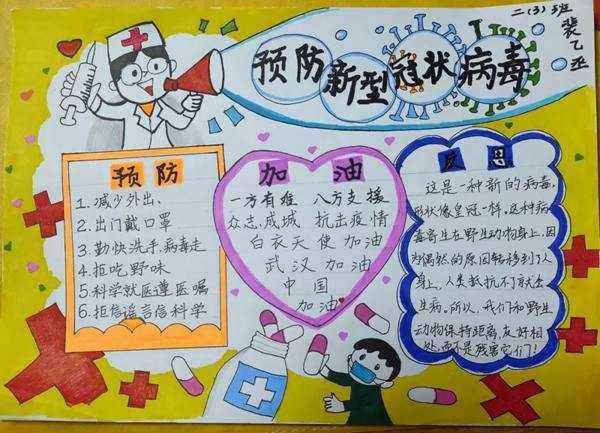 二(3)班
裴乙丞
预防新型冠状病毒
预防
1.减少外出、
2.出门戴口罩
3.勤快洗手病毒走
4.拒吃野味
5.科学就医遵医嘱
6.拒信谣言信科学
加油
一方有难 八方支援
众志成城 抗击疫情
白衣天使加油
武汉加油
中国
加油
反思
这是一种新的病毒,
形状像皇冠一样,这种病
毒寄生在野生动物身上,因
为偶然的原因转移到了人
身上,人类抵抗不了就会
生病。所以,我们和野生
动物保持距离,友好相
处而不是残害它们!